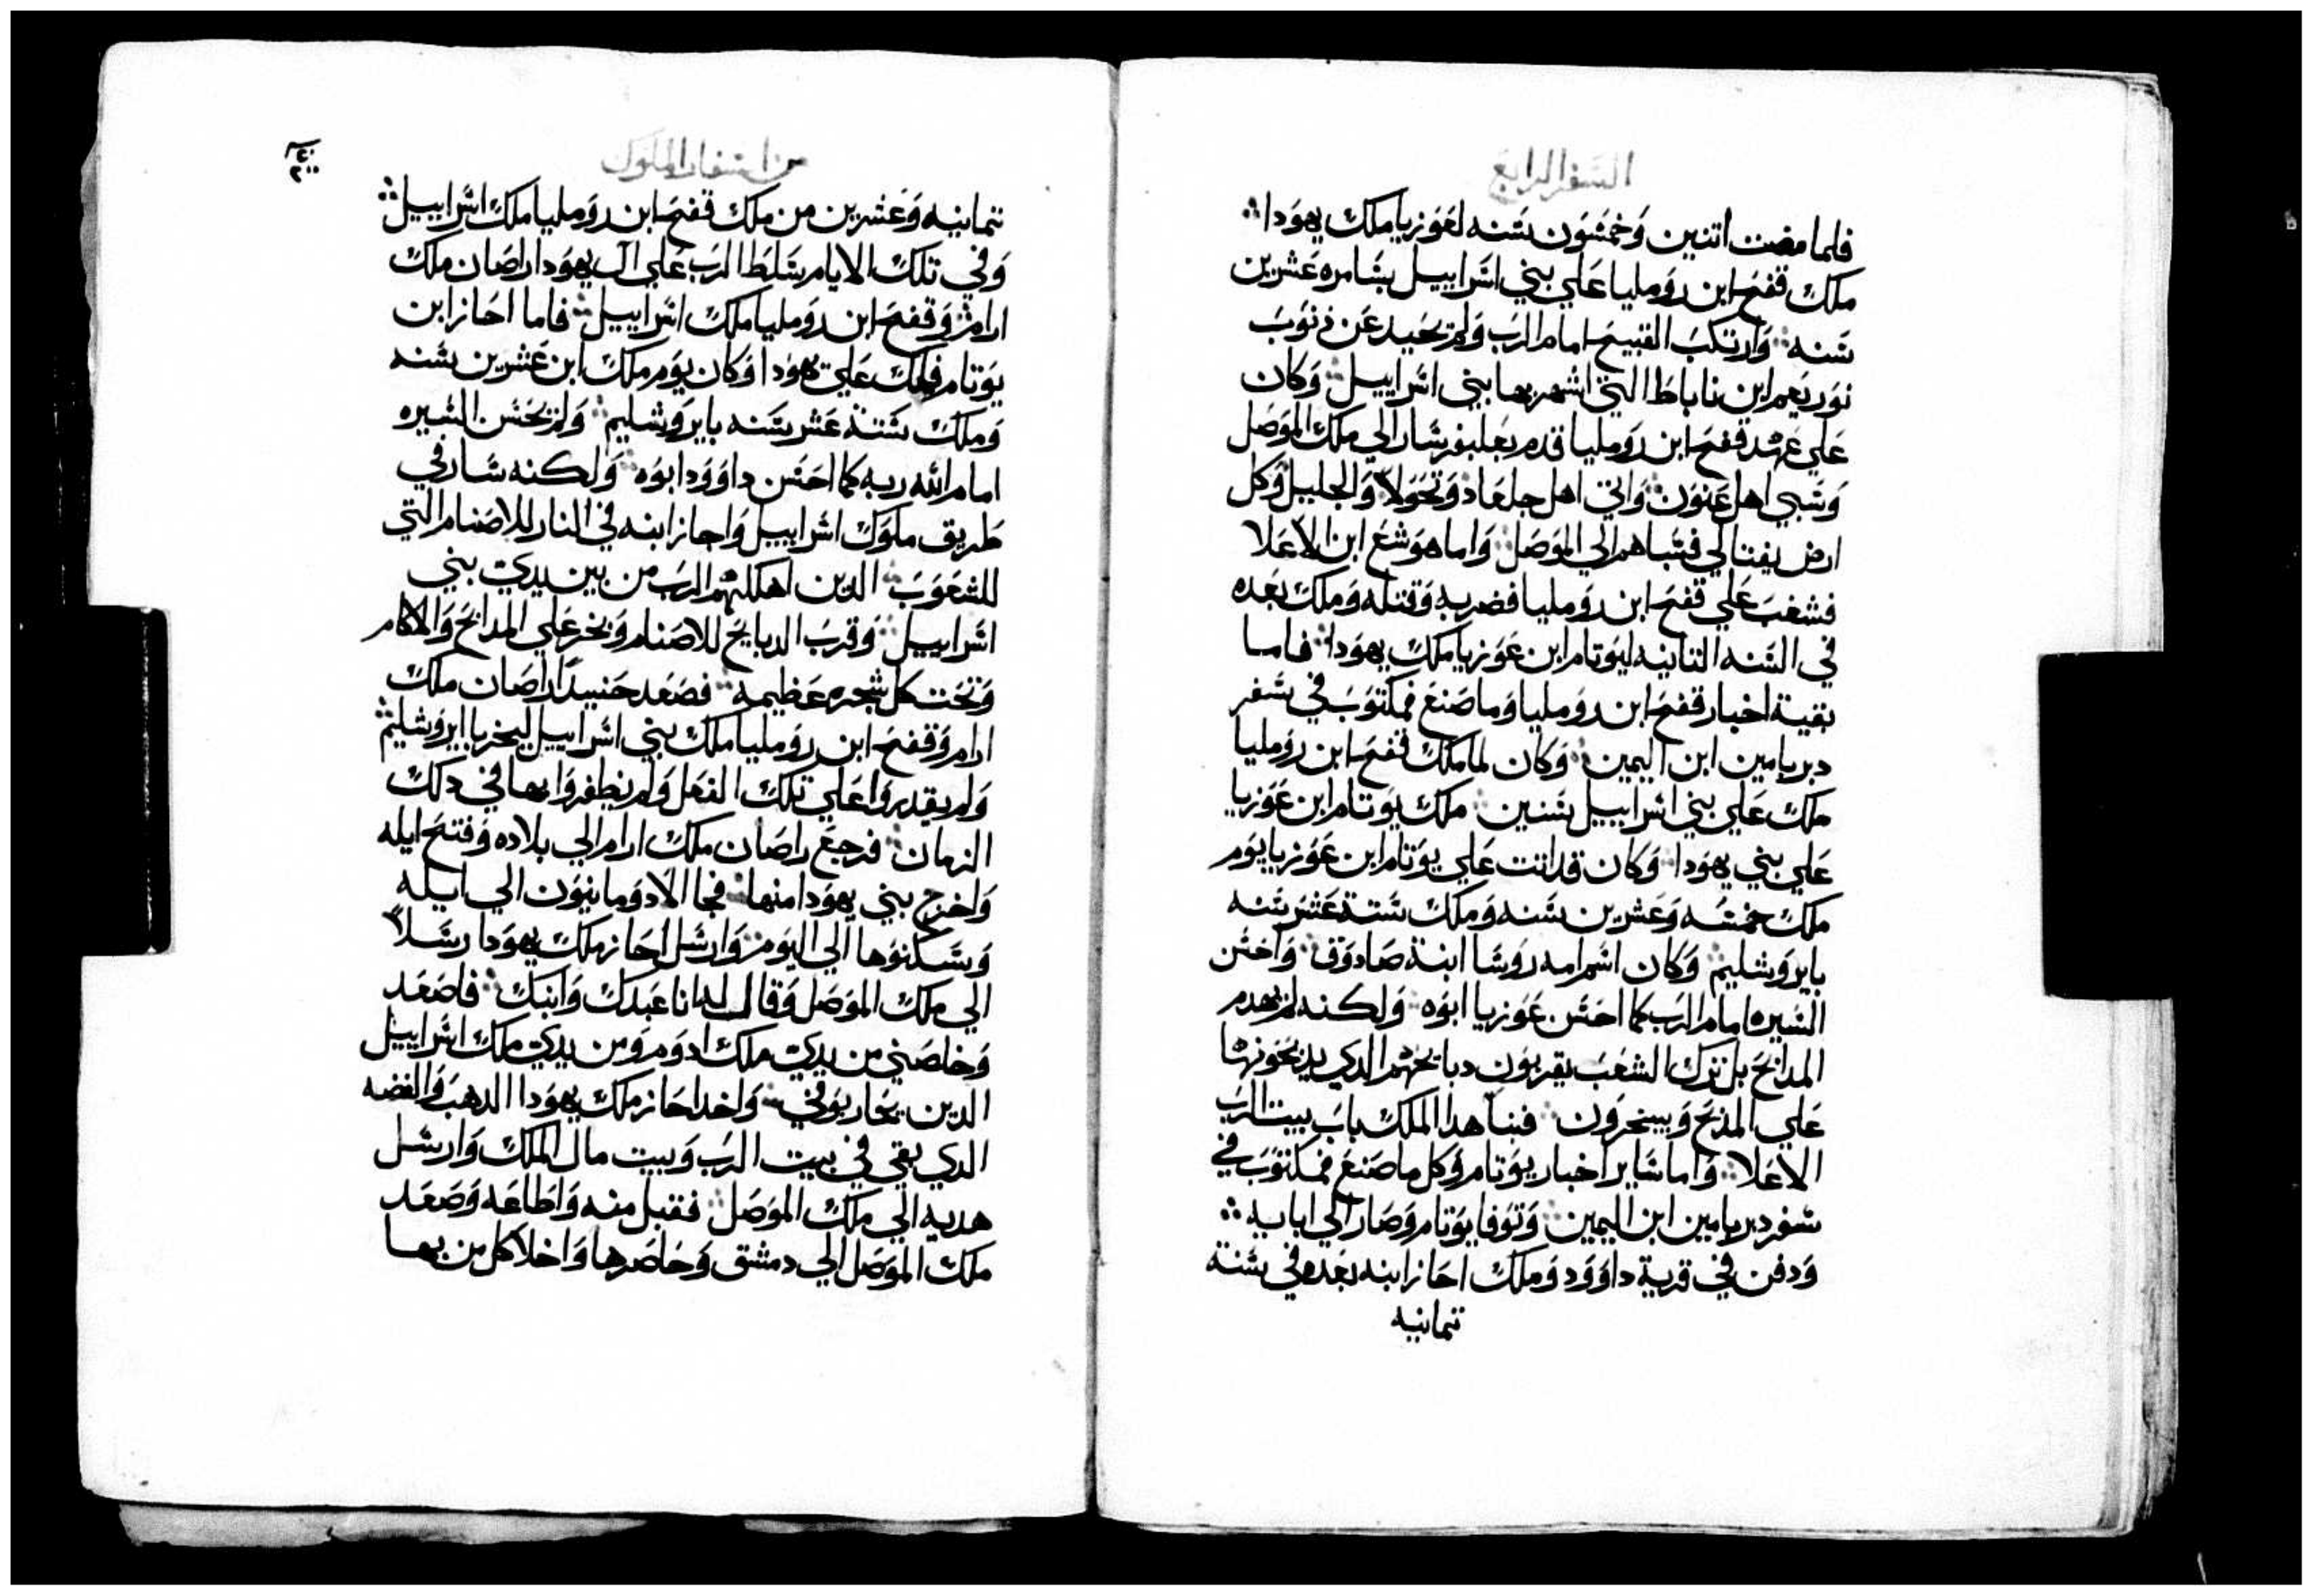 السفر الرابع
فلما مضت اتنين وخمسون سنه لعوزيا ملك يهودا
ملك قفح ابن روميليا علي بني اسراييل بسامره عشرين
سنه وارتكب القبيح امام الرب ولم يحيد عن ذنوب
نوربعم ابن ناباط التي اشهر بها بني اسراييل وكان
علي عهد قفح ابن رومليا قدم بعلبفرسار الي ملك الموصل
وسبي اهل عنون واتي اهل جلعاد وتحولا والجليل وكل
ارض يفتالي فسباهم الي الموصل واما هوشع ابن الاعلا
فشغب علي قفح ابن رومليا فضربه وقتله وملك بعده
في السنه التانيه ليوتام ابن عوزيا ملك يهودا فاما
بقية اخبار قفح ابن رومليا وما صنع فمكتوب في سفر
دبريامين ابن اليمين وكان لما ملك قفح ابن رومليا
ملك علي بني اسراييل سنين ملك يوتام ابن عوزيا
علي بني يهودا وكان قد اتت علي يوتام ابن عوزيا يوم
ملك خمسه وعشرين سنه وملك ستة عشر سنه
بايروشليم وكان اسم امه روسا ابنة صادوق واحسن
السيره امام الرب كما احسن عوزيا ابوه ولكنه لم يهدم
المدابح بل ترك الشعب يقربون دبايحهم الدي يدبحونها
علي المدبح ويبخرون فبنا هدا الملك باب بيت الرب
الاعلا واما ساير اخبار يوتام وكل ما صنع فمكتوب في
سفر دبريامين ابن اليمين وتوفا يوتام وصار الي ابايه
ودفن في قرية داوود وملك احاز ابنه بعده في سنة
تمانيه
من اسفار الملوك
تمانيه وعشرين من ملك قفح ابن رومليا ملك اسراييل
وفي تلك الايام سلط الرب علي ال يهودا راصان ملك
ارام وقفح ابن رومليا ملك اسراييل فاما احاز ابن
يوتام فملك علي يهودا وكان يوم ملك ابن عشرين سنه
وملك ستة عشر سنه بايروشليم ولم يحسن السيره
امام الله ربه كما احسن داوود ابوه ولكنه سار في
طريق ملوك اسراييل واجاز ابنه في النار للاصنام التي
للشعوب الدين اهلكهم الرب من بين يدي بني
اسراييل وقرب الدبايح للاصنام وبخر علي المدابح والاكام
وتحت كل شجره عظيمه فصعد حنيدا راصان ملك
ارام وقفح ابن رومليا ملك بني اسراييل ليخربا ايروشليم
ولم يقدروا علي تلك الفعل ولم يظفروا بها في دلك
الزمان فرجع راصان ملك ارام الي بلاده وفتح ايله
واخرج بني يهودا منها فجا الادومانيون الي ايله
وسكنوها الي اليوم وارسل احاز ملك يهودا رسلا
الي ملك الموصل وقال له انا عبدك وابنك فاصعد
وخلصني من يدي ملك ادوم ومن يدي ملك اسراييل
الدين يحاربوني واخد احاز ملك يهودا الدهب والفضه
الدي بقي في بيت الرب وبيت مال الملك وارسل
هديه الي ملك الموصل فقبل منه واطاعه وصعد
ملك الموصل الي دمشق وحاصرها واخلا كل من بها